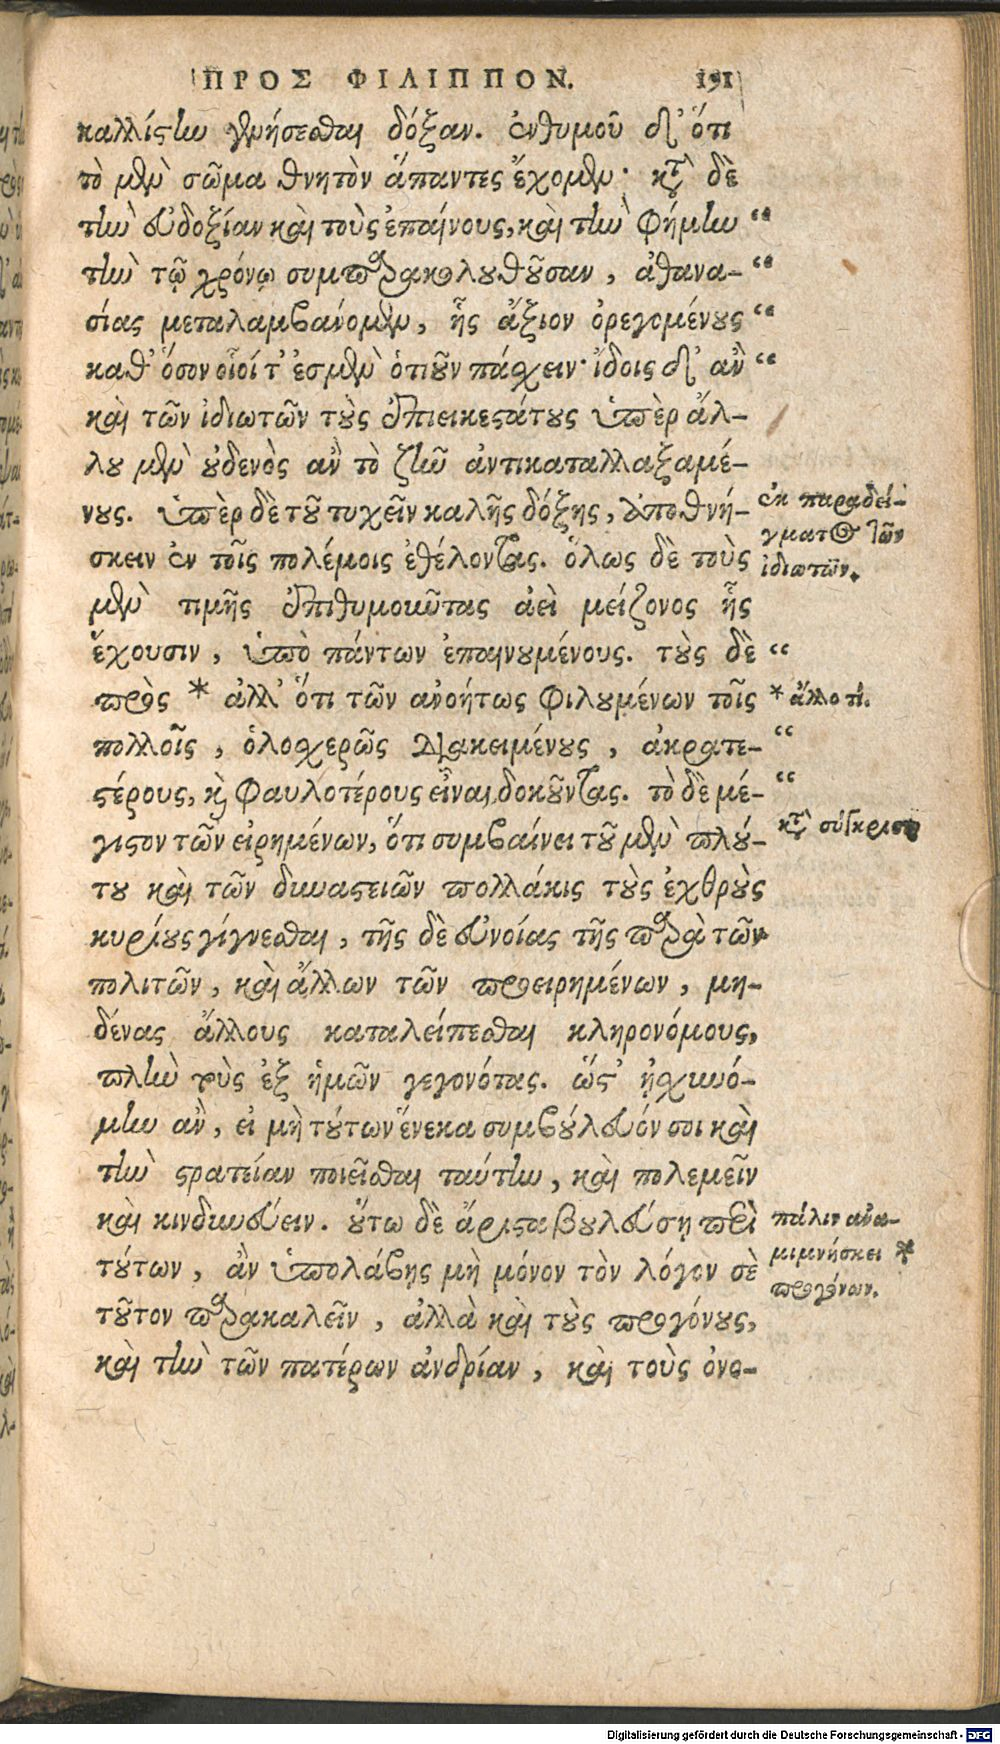 ΠΡΟΣ ΦΙΛΙΠΠΟΝ. 191
καλλίστην κτήσεσθαι δόξαν. ἐνθυμοῦ δ' ὅτι
τὸ μὲν σῶμα θνητὸν ἅπαντες ἔχομεν· κατὰ δὲ
τὴν εὐδοξίαν καὶ τοὺς ἐπαίνους, καὶ τὴν φήμην “
τὴν τῷ χρόνῳ συμπαρακολουθοῦσαν, ἀθανα- “
σίας μεταλαμβάνομεν, ἧς ἄξιον ὀρεγομένους “
καθ' ὅσον οἷοί τ' ἐσμὲν ὁτιοῦν πάσχειν· ἴδοις δ' ἂν “
καὶ τῶν ἰδιωτῶν τοὺς ἐπιεικεστάτους ὑπὲρ ἄλ-
λου μὲν οὐδενὸς ἂν τὸ ζῆν ἀντικαταλλαξαμέ-
νους. ὑπὲρ δὲ τοῦ τυχεῖν καλῆς δόξης, ἀποθνή-
σκειν ἐν τοῖς πολέμοις ἐθέλοντας. ὅλως δὲ τοὺς
μὲν τιμῆς ἐπιθυμοῦντας ἀεὶ μείζονος ἧς
ἔχουσιν, ὑπὸ πάντων ἐπαινουμένους. τοὺς δὲ “
πρὸς * ἀλλ' ὅτι τῶν ἀνοήτως φιλουμένων τοῖς
πολλοῖς, ὁλοσχερῶς διακειμένους, ἀκρατε- “
στέρους, καὶ φαυλοτέρους εἶναι δοκοῦντας. τὸ δὲ μέ- “
γιστον τῶν εἰρημένων, ὅτι συμβαίνει τοῦ μὲν πλού-
του καὶ τῶν δυναστειῶν πολλάκις τοὺς ἐχθροὺς
κυρίους γίγνεσθαι, τῆς δὲ εὐνοίας τῆς παρὰ τῶν
πολιτῶν, καὶ ἄλλων τῶν προειρημένων, μη-
δένας ἄλλους καταλείπεσθαι κληρονόμους,
πλὴν τοὺς ἐξ ἡμῶν γεγονότας. ὥστ' ᾐσχυνό-
μην ἂν, εἰ μὴ τούτων ἕνεκα συμβούλευόν σοι καὶ
τὴν στρατείαν ποιεῖσθαι ταύτην, καὶ πολεμεῖν
καὶ κινδυνεύειν. οὕτω δὲ ἄριστα βουλεύσῃ περὶ
τούτων, ἂν ὑπολάβῃς μὴ μόνον τὸν λόγον σὲ
τοῦτον παρακαλεῖν, ἀλλὰ καὶ τοὺς προγόνους,
καὶ τὴν τῶν πατέρων ἀνδρίαν, καὶ τοὺς ὀνο-
ἐκ παραδεί-
γματος τῶν
ἰδιωτῶν.
* ἄλλο τι.
κατὰ σύγκρισιν
πάλιν ἀνα-
μιμνήσκει
προγόνων.
Digitalisierung gefördert durch die Deutsche Forschungsgemeinschaft - DFG